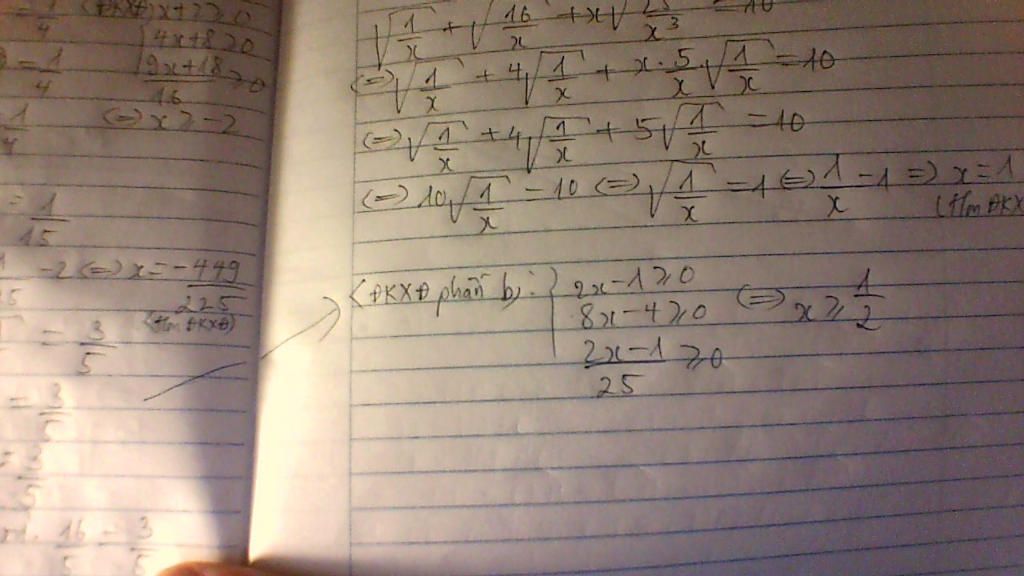 (ĐKXĐ) x+2≥0
4x+8≥0
= 1/4
(9x+18)/16 ≥0
(=) x ≥ -2
= 1/15
-2 (=) x = -449/225
(t/m ĐKXĐ)
= 3/5
= 3/5
16/5 = 3
√(1/x) + √(16/x) + x√(25/x³) = 10
(=) √(1/x) + 4√(1/x) + x·5/x √(1/x) = 10
(=) √(1/x) + 4√(1/x) + 5√(1/x) = 10
(=) 10√(1/x) = 10 (=) √(1/x) = 1 (=) 1/x = 1 => x = 1
(t/m ĐKX
(ĐKXĐ phần b): 2x-1≥0
8x-4≥0 (=) x ≥ 1/2
(2x-1)/25 ≥0